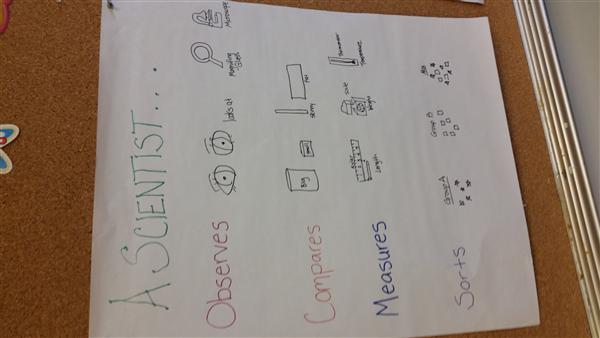 A SCIENTIST...
Observes
looks at
Magnifying
glass
Microscope
Compares
Big
small
skinny
Fat
Measures
ruler
Length
scale
weight
Thermometer
Temperature
Sorts
Group A
Group B
Mix